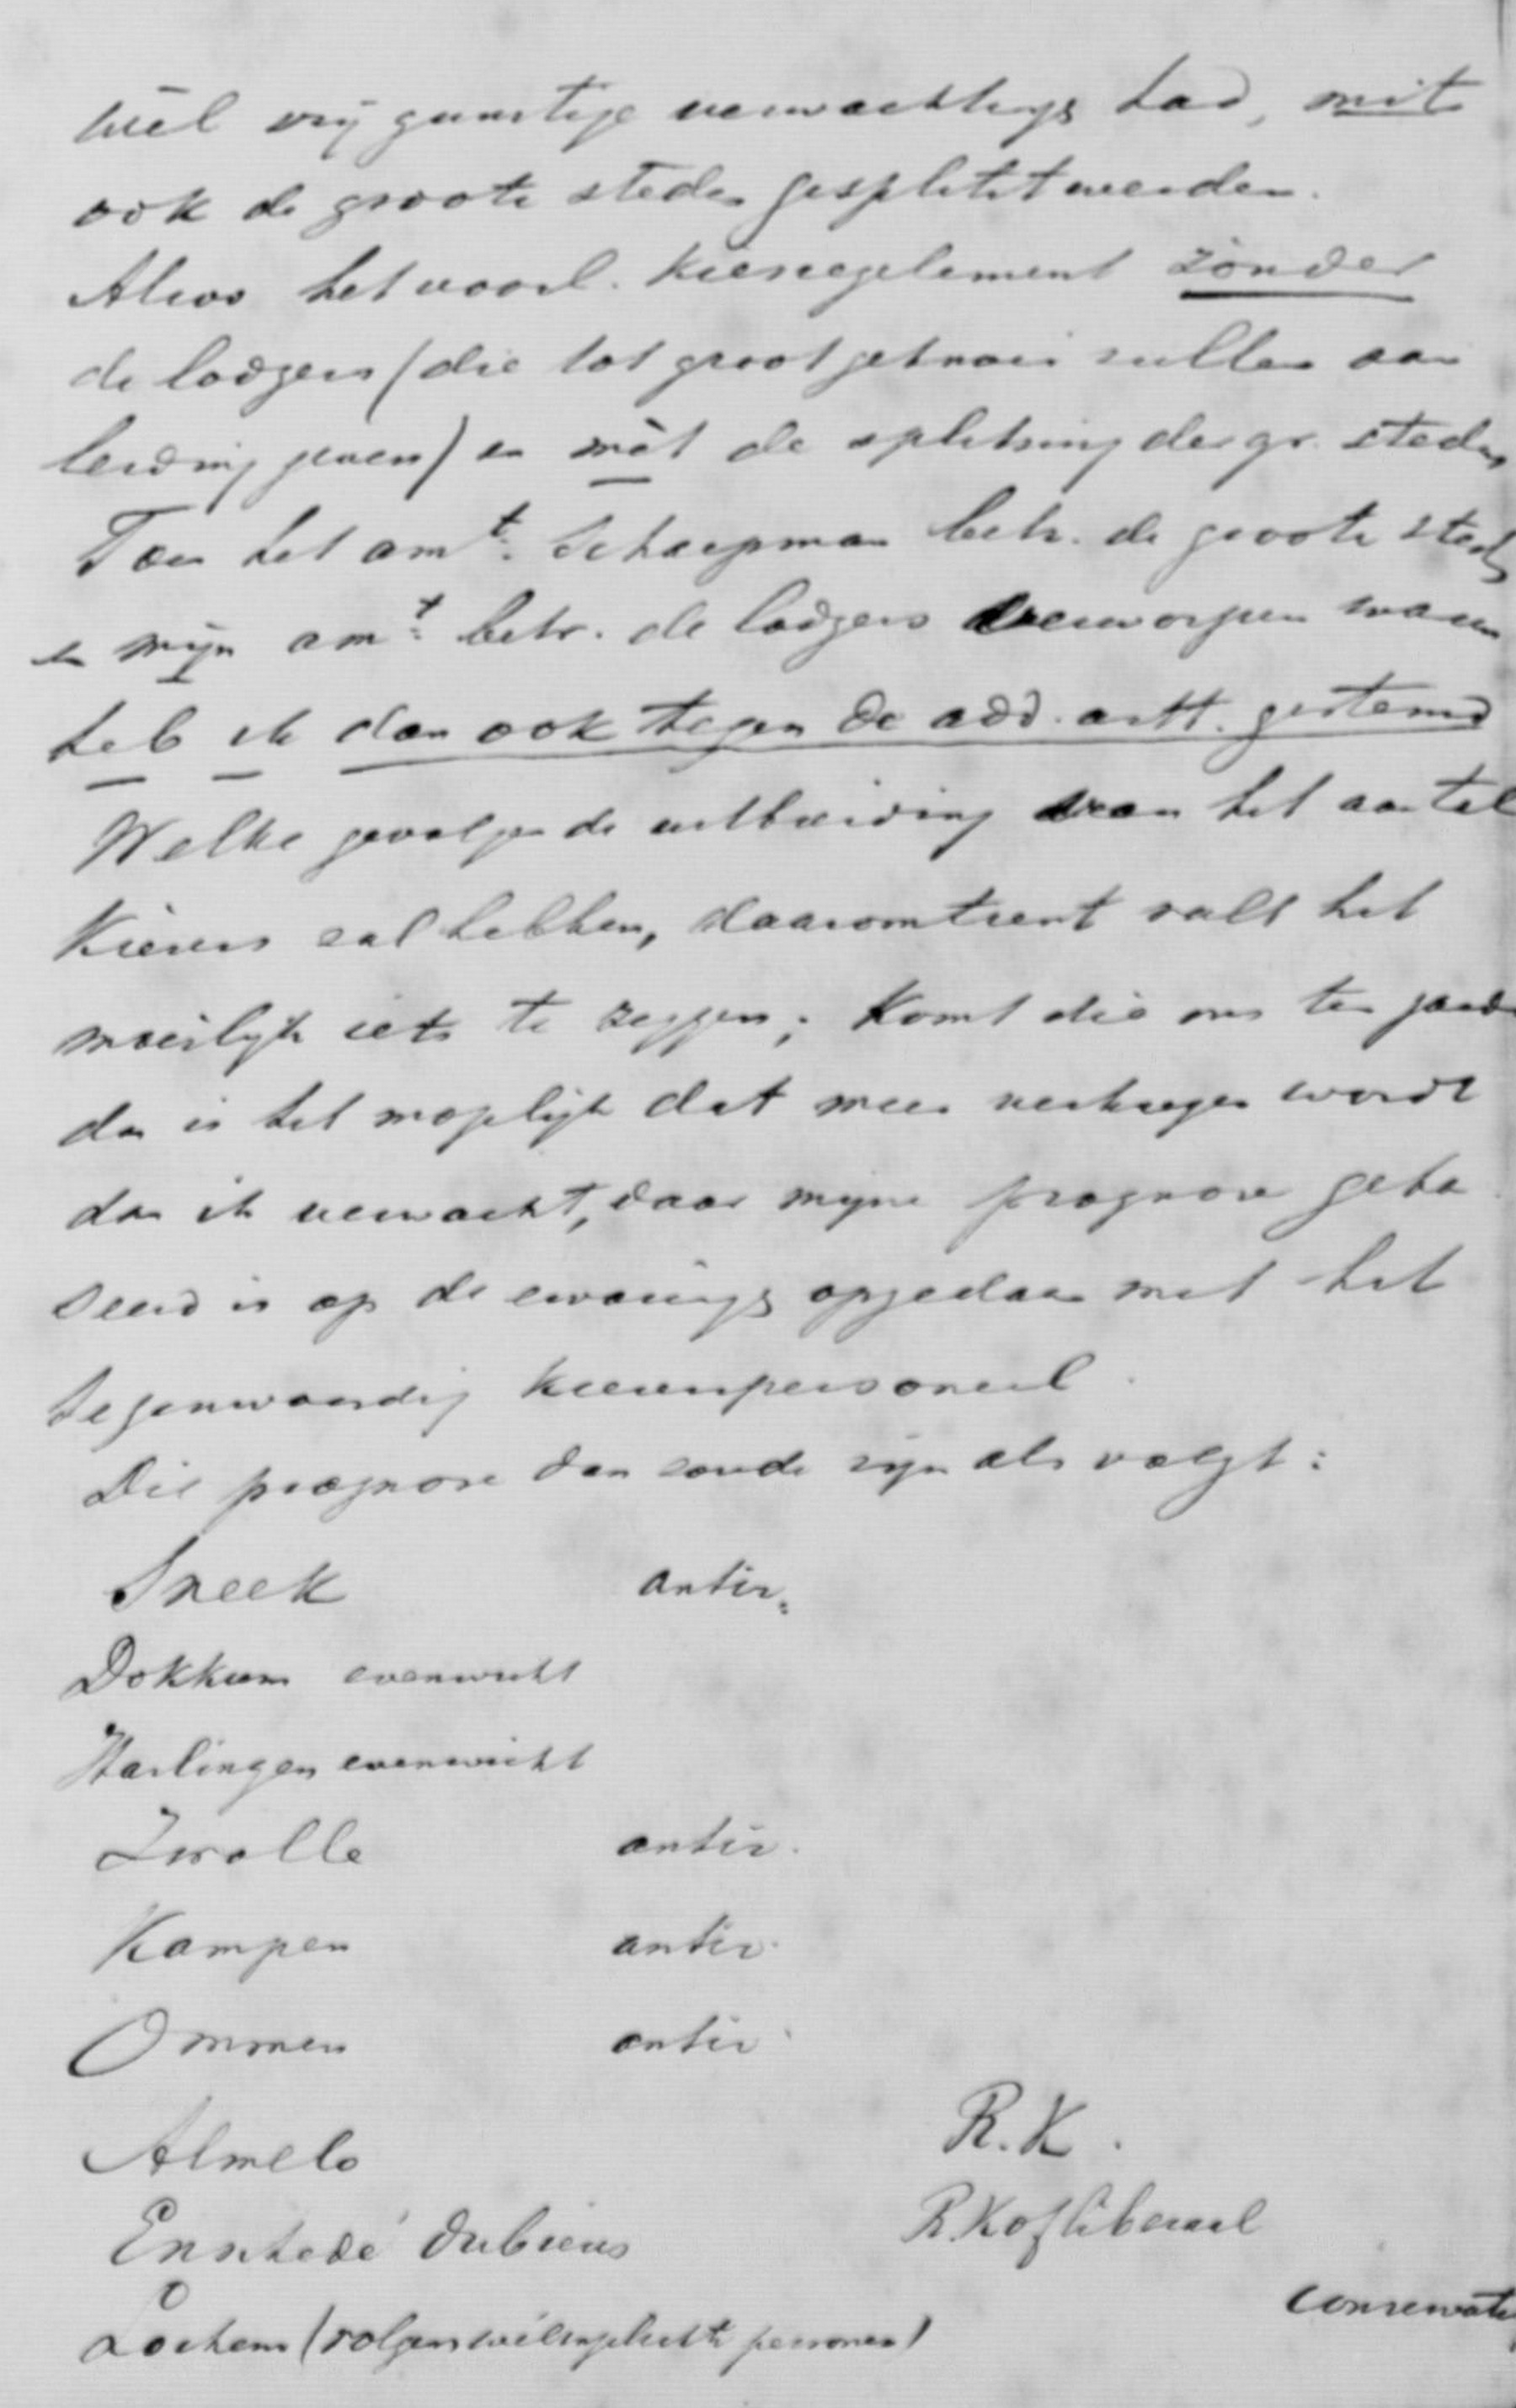 wèl vrij gunstige verwachtings had, mits
ook de groote steden gesplitst werden.
Alzoo het voorl. kiesreglement zonder
de lodgers (die tot groot geknoei zullen aan
leiding geven) en mèt de splitsing der gr. steden
Toen het amt. Schaepman betr. de groote steden
en mijn amt. betr. de lodgers verworpen waren
heb ik dan ook tegen de add. artt. gestemd
Welke gevolgen de uitbreiding van het aantal
Kiezers zal hebben, daaromtrent valt het
moeilijk iets te zeggen; komt die ons ten goede
dan is het mogelijk dat meer verkregen wordt
dan ik verwacht, daar mijne prognose geba
seerd is op de ervarings opgedaan met het
tegenwoordig kiezerspersoneel.
Die prognose dan zoude zijn als volgt:
Sneek antir.
Dokkum evenwicht
Harlingen evenwicht
Zwolle antir.
Kampen antir.
Ommen antir.
Almelo R.K.
Enschedé dubieus R.K of liberaal
Lochem (volgens welingelichte personen) conservatief